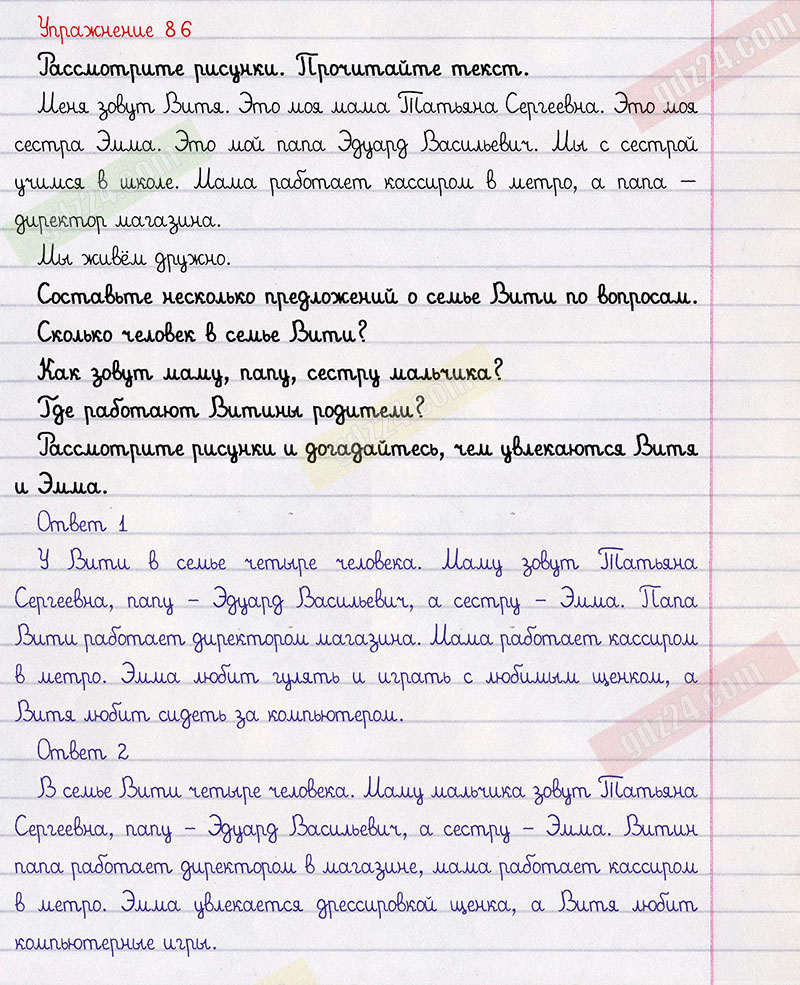 Упражнение 86
Рассмотрите рисунки. Прочитайте текст.
Меня зовут Витя. Это моя мама Татьяна Сергеевна. Это моя
сестра Эмма. Это мой папа Эдуард Васильевич. Мы с сестрой
учимся в школе. Мама работает кассиром в метро, а папа –
директор магазина.
Мы живём дружно.
Составьте несколько предложений о семье Вити по вопросам.
Сколько человек в семье Вити?
Как зовут маму, папу, сестру мальчика?
Где работают Витины родители?
Рассмотрите рисунки и догадайтесь, чем увлекаются Витя
и Эмма.
Ответ 1
У Вити в семье четыре человека. Маму зовут Татьяна
Сергеевна, папу – Эдуард Васильевич, а сестру – Эмма. Папа
Вити работает директором магазина. Мама работает кассиром
в метро. Эмма любит гулять и играть с любимым щенком, а
Витя любит сидеть за компьютером.
Ответ 2
В семье Вити четыре человека. Маму мальчика зовут Татьяна
Сергеевна, папу – Эдуард Васильевич, а сестру – Эмма. Витин
папа работает директором в магазине, мама работает кассиром
в метро. Эмма увлекается дрессировкой щенка, а Витя любит
компьютерные игры.
gdz24.com
gdz24.com
gdz24.com
gdz24.com